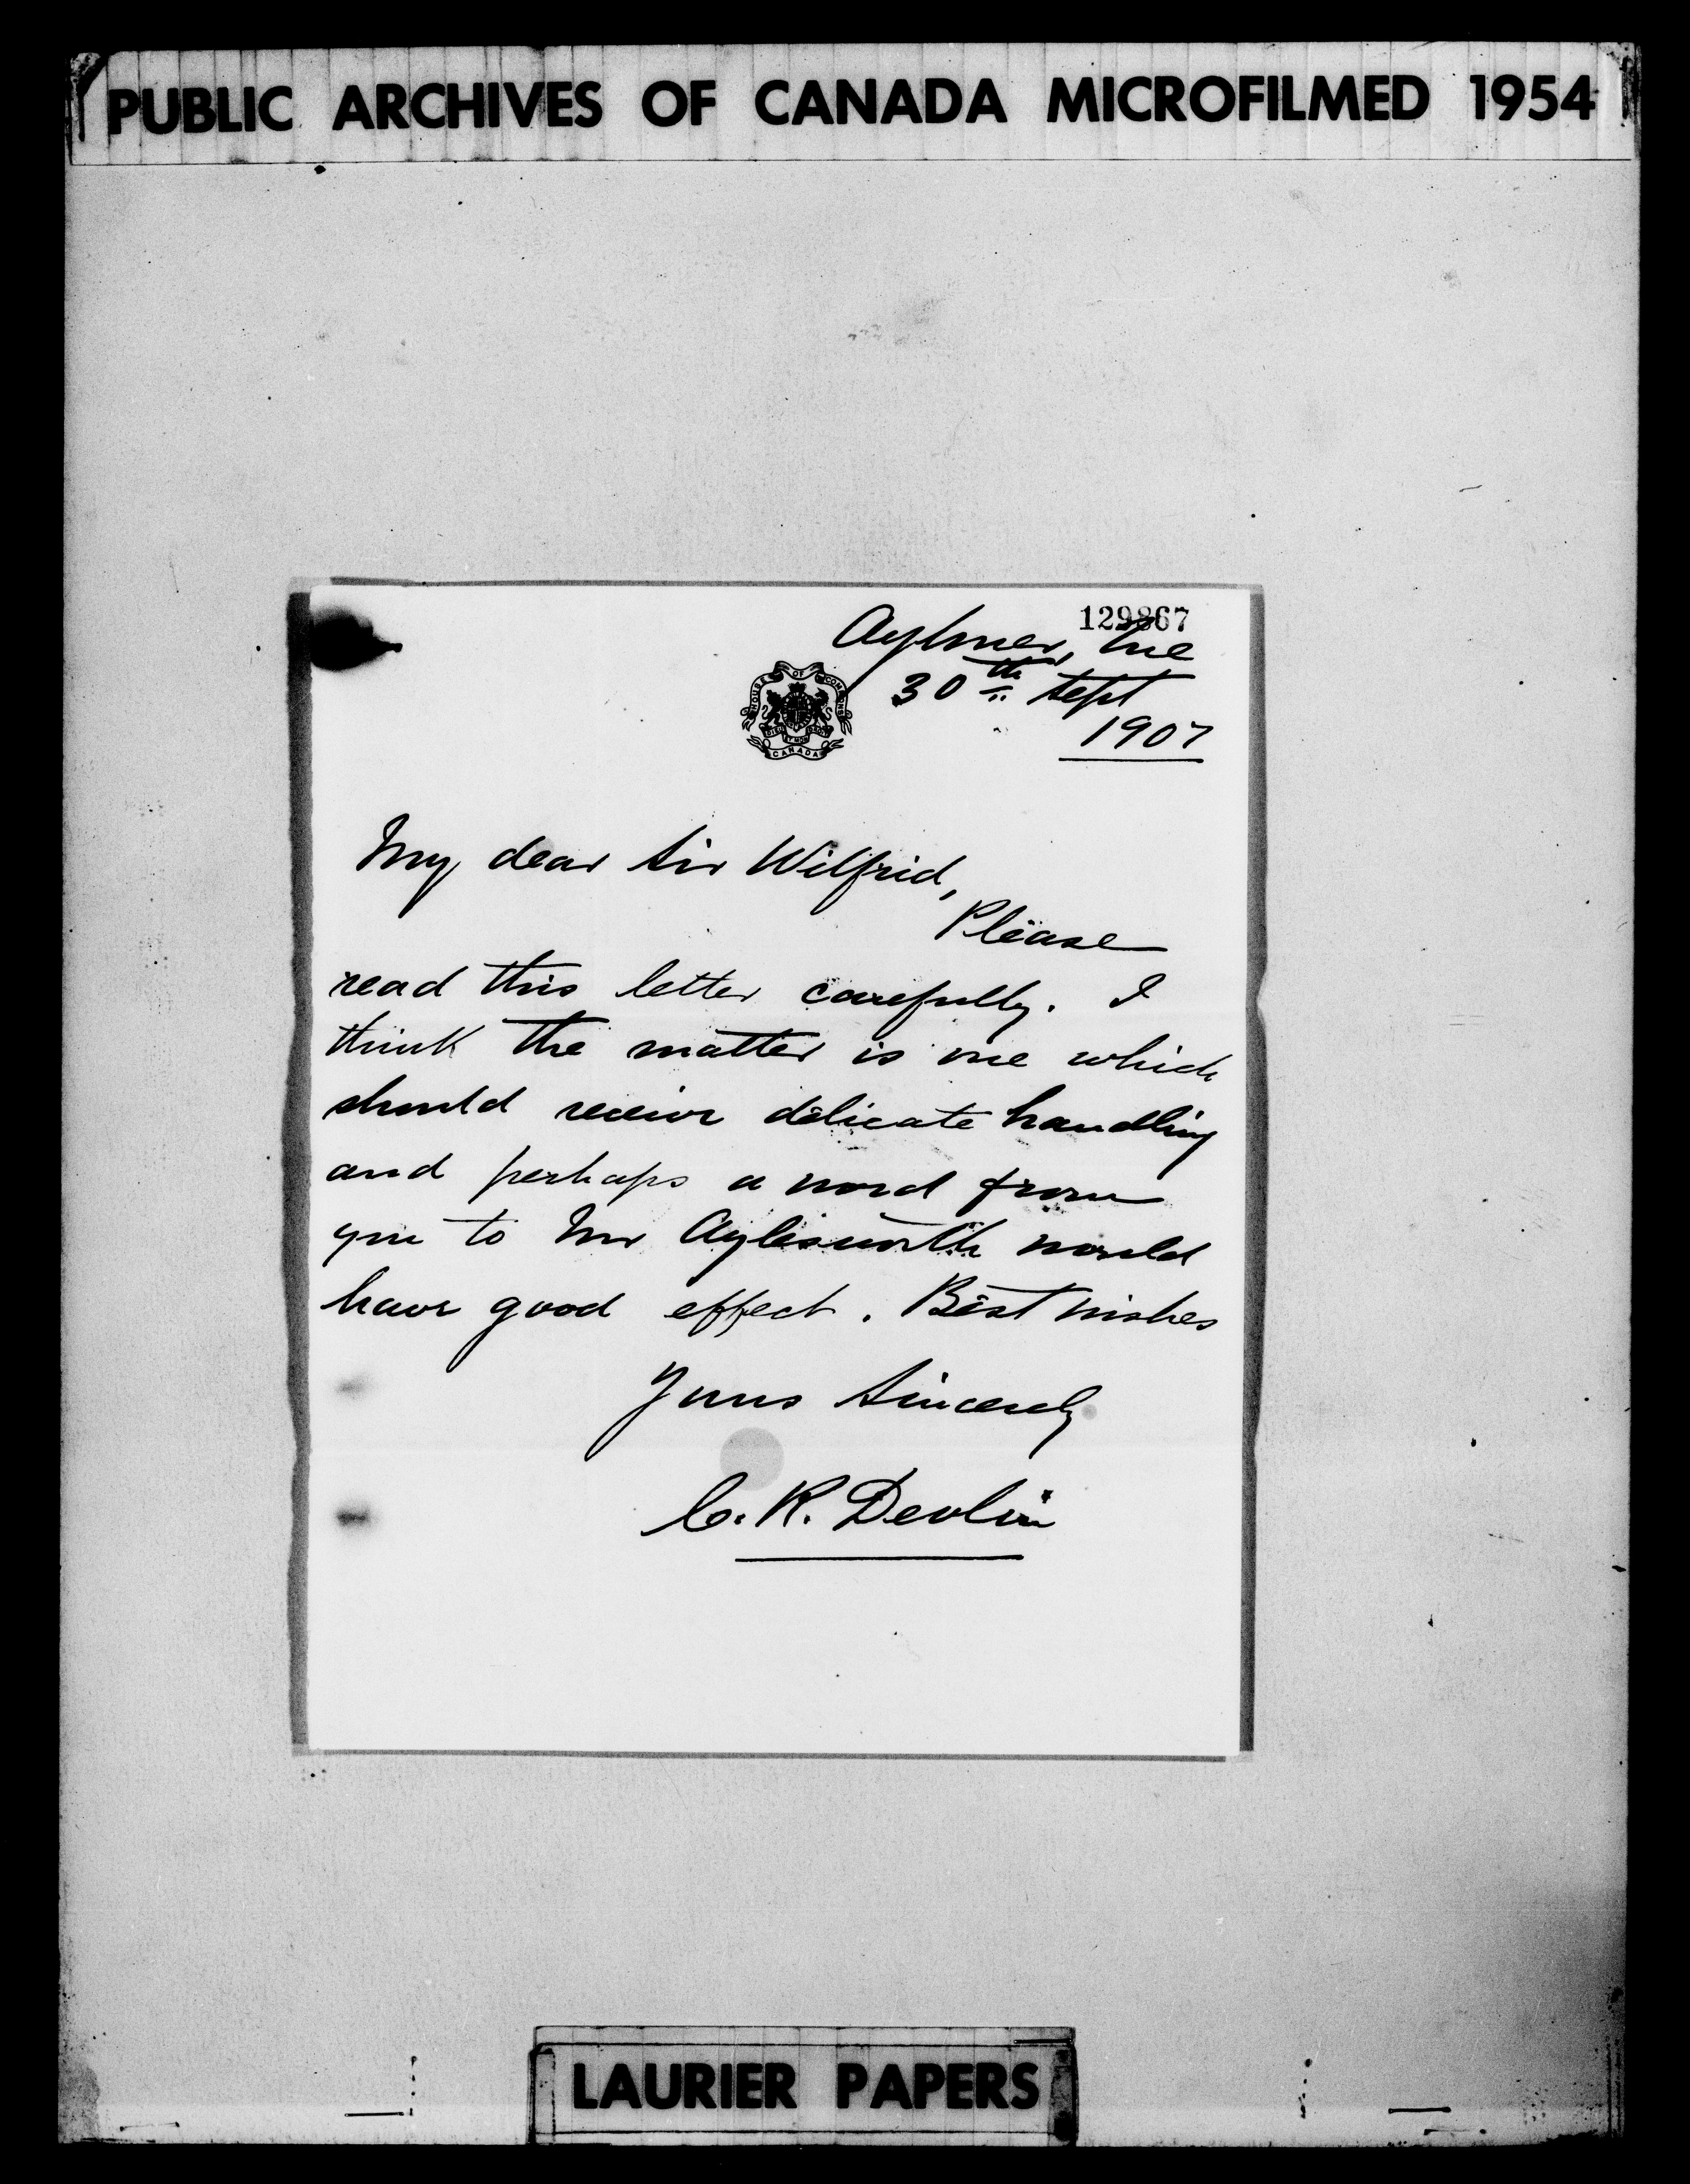 PUBLIC ARCHIVES OF CANADA MICROFILMED 1954
129867
Aylmer, Que
30th Sept
1907
HOUSE OF COMMONS
CANADA
My dear Sir Wilfrid,
Please
read this letter carefully. I
think the matter is one which
should receive delicate handling
and perhaps a word from
you to Mr Aylesworth would
have good effect. Best wishes
Yours Sincerely
C. R. Devlin
LAURIER PAPERS